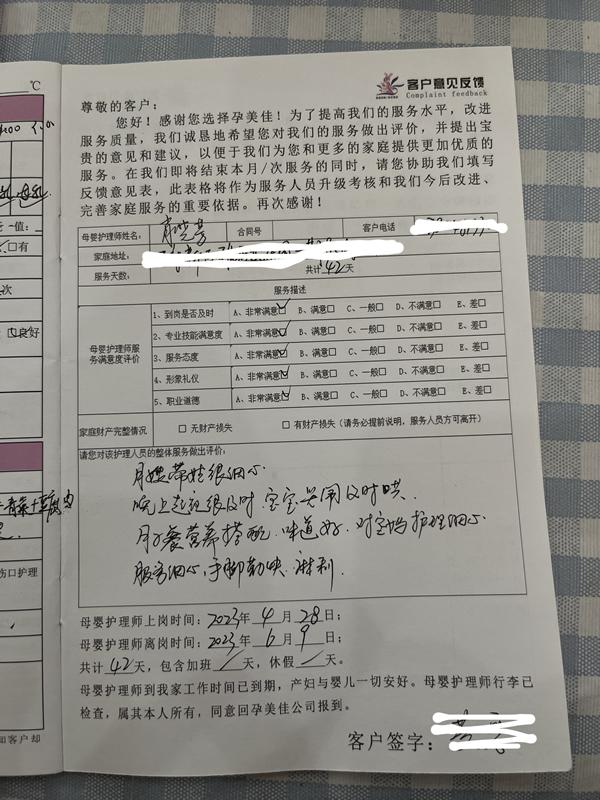 ℃
客户意见反馈
Complaint feedback
尊敬的客户：
您好！感谢您选择孕美佳！为了提高我们的服务水平，改进
服务质量，我们诚恳地希望您对我们的服务做出评价，并提出宝
贵的意见和建议，以便于我们为您和更多的家庭提供更加优质的
服务。在我们即将结束本月/次服务的同时，请您协助我们填写
反馈意见表，此表格将作为服务人员升级考核和我们今后改进、
完善家庭服务的重要依据。再次感谢！
母婴护理师姓名： 合同号 客户电话
家庭地址：
服务天数： 共计42天
服务描述
母婴护理师服
务满意度评价
1、到岗是否及时 A、非常满意☑ B、满意□ C、一般□ D、不满意□ E、差□
2、专业技能满意度 A、非常满意☑ B、满意□ C、一般□ D、不满意□ E、差□
3、服务态度 A、非常满意☑ B、满意□ C、一般□ D、不满意□ E、差□
4、形象礼仪 A、非常满意☑ B、满意□ C、一般□ D、不满意□ E、差□
5、职业道德 A、非常满意☑ B、满意□ C、一般□ D、不满意□ E、差□
家庭财产完整情况 □ 无财产损失 □ 有财产损失（请务必提前说明，服务人员方可离开）
请您对该护理人员的整体服务做出评价：
月嫂带娃很细心
晚上起夜很及时.宝宝哭闹及时哄.
月子餐营养搭配.味道好.对宝妈护理细心
服务细心,手脚勤快.麻利.
母婴护理师上岗时间：2023年 4 月 28 日；
母婴护理师离岗时间：2023年 6 月 9 日；
共计 42 天，包含加班 / 天，休假 / 天。
母婴护理师到我家工作时间已到期，产妇与婴儿一切安好。母婴护理师行李已
检查，属其本人所有，同意回孕美佳公司报到。
客户签字：
值：
□有
次
良好
伤口护理
如客户却